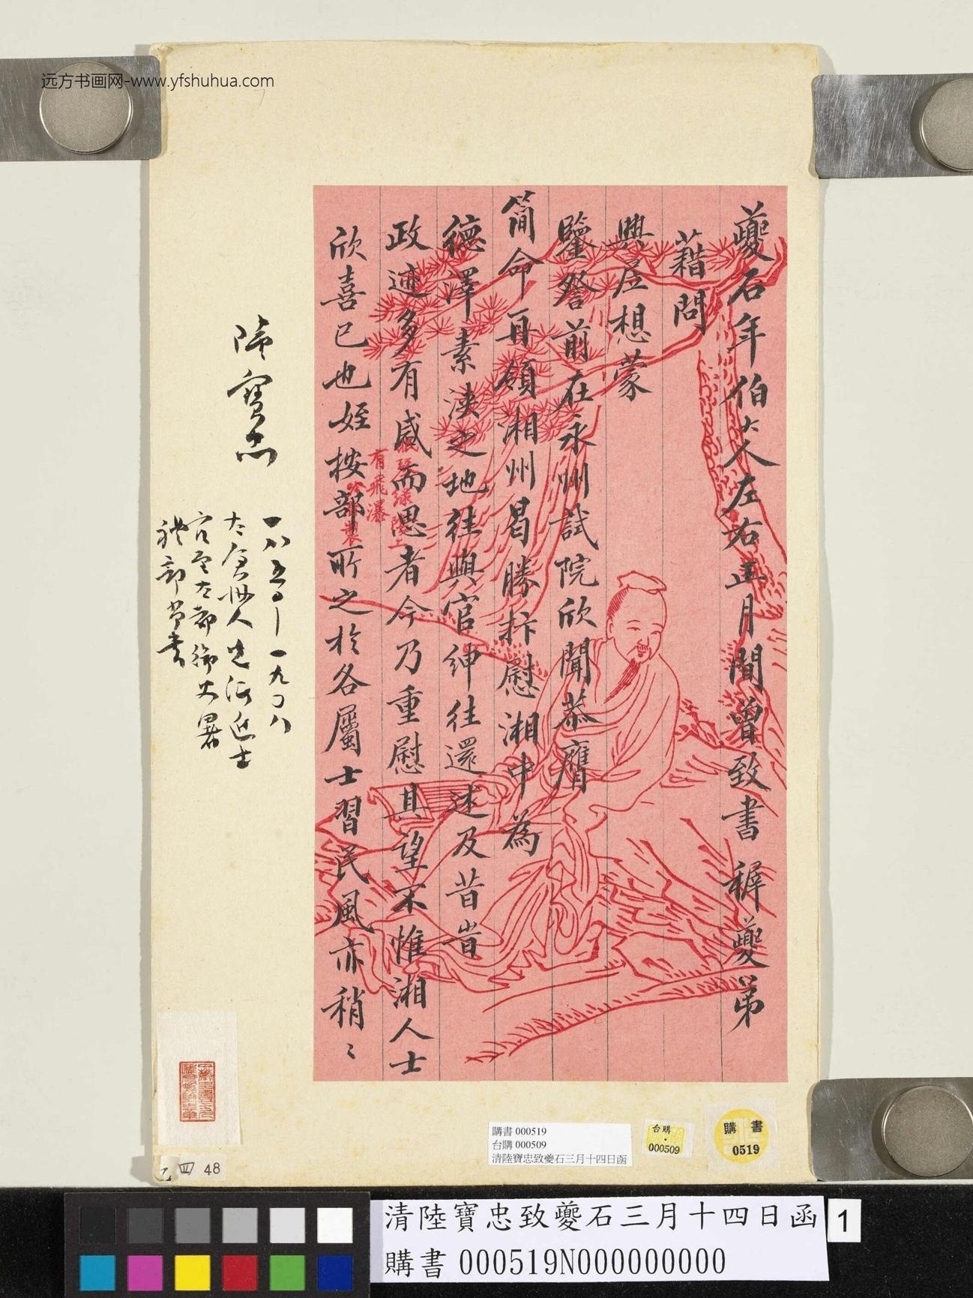 远方书画网-www.yfshuhua.com
夔石年伯大人左右正月間曾致書穉夔弟
藉問
興居想蒙
鑒詧前在永州試院欣聞恭膺
簡命再領湘州曷勝抃慰湘中為
德澤素浹之地往與官紳往還述及昔時
政迹多有感而思者今乃重慰其望不惟湘人士
欣喜已也姪按部所之於各屬士習民風亦稍〻
有飛瀑
陸寶忠
一八五〇-一九〇八
太倉州人光緒進士
官至左都御史署
禮部尚書
購書 000519
台購 000509
清陸寶忠致夔石三月十四日函
台購
000509
購書
0519
四 48
清陸寶忠致夔石三月十四日函
購書 000519N000000000
1